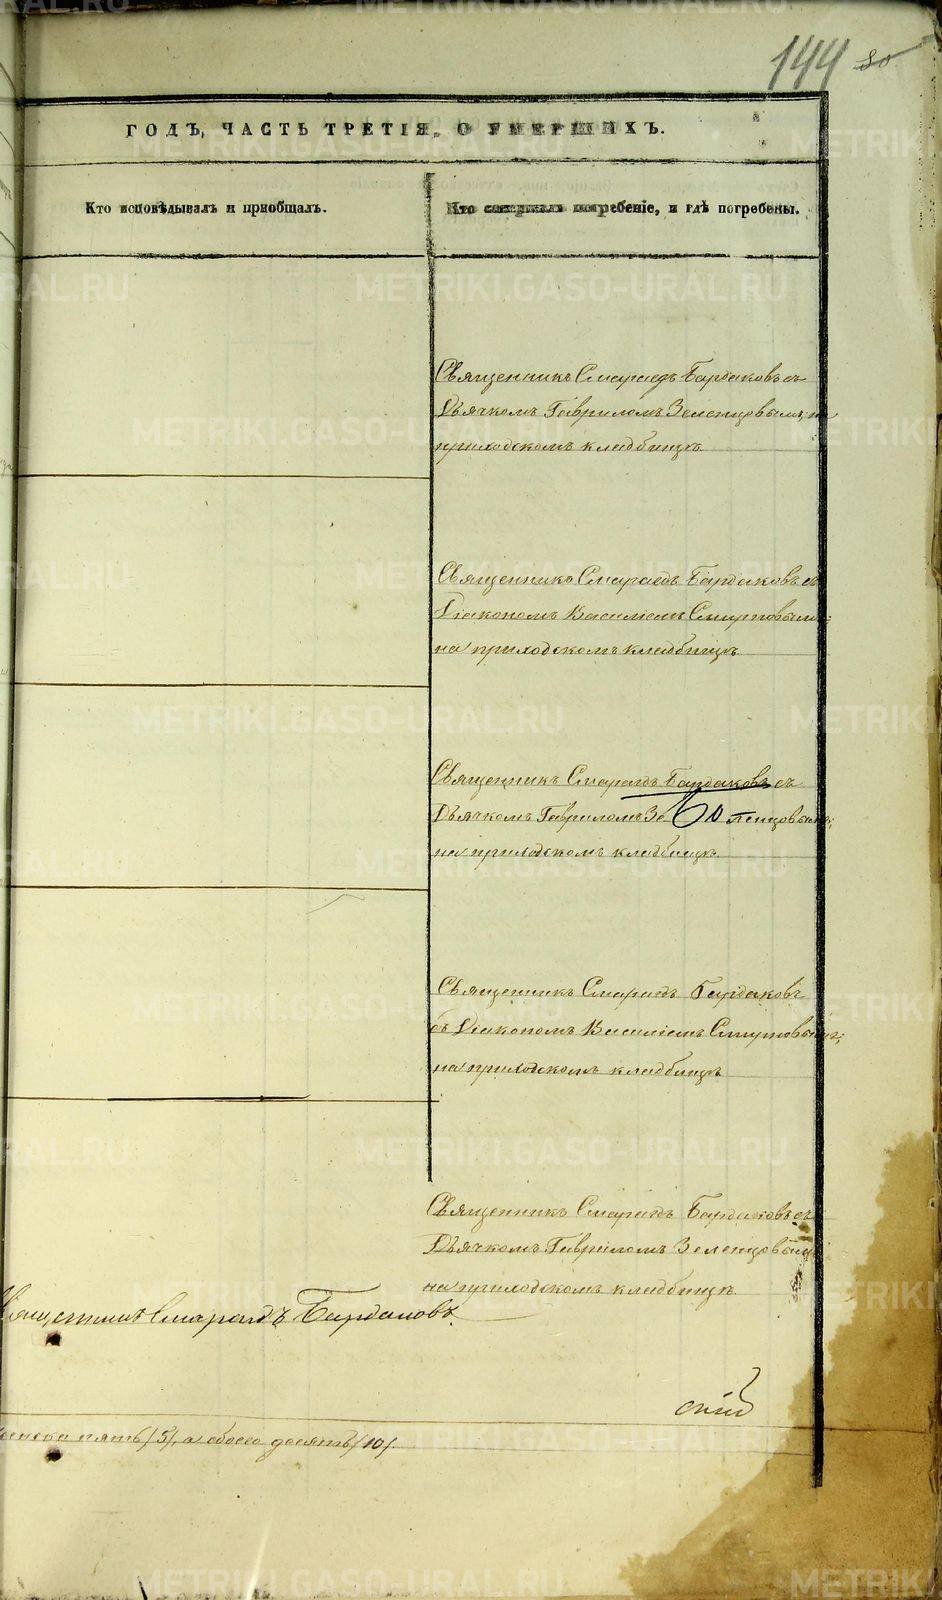 144 80
ГОДЪ, ЧАСТЬ ТРЕТІЯ, О УМЕРШИХЪ.
Кто исповѣдывалъ и пріобщалъ.
Кто совершалъ погребеніе, и гдѣ погребены.
Священникъ Смарагдъ Бардаковъ съ
Дьячкомъ Гавриломъ Зеленцовымъ, на
приходскомъ кладбищѣ.
Священникъ Смарагдъ Бардаковъ съ
Діакономъ Василіемъ Смирновымъ;
на приходскомъ кладбищѣ
Священникъ Смарагдъ Бардаковъ съ
Дьячкомъ Гавриломъ Зеленцовымъ;
на приходскомъ кладбищѣ.
Священникъ Смарагдъ Бардаковъ
съ Діакономъ Василіемъ Смирновымъ;
на приходскомъ кладбищѣ
Священникъ Смарагдъ Бардаковъ съ
Дьячкомъ Гавриломъ Зеленцовымъ
на приходскомъ кладбищѣ.
Священникъ Смарагдъ Бардаковъ.
скій
женска пять /5/, а обоего десять /10/.
METRIKI.GASO-URAL.RU